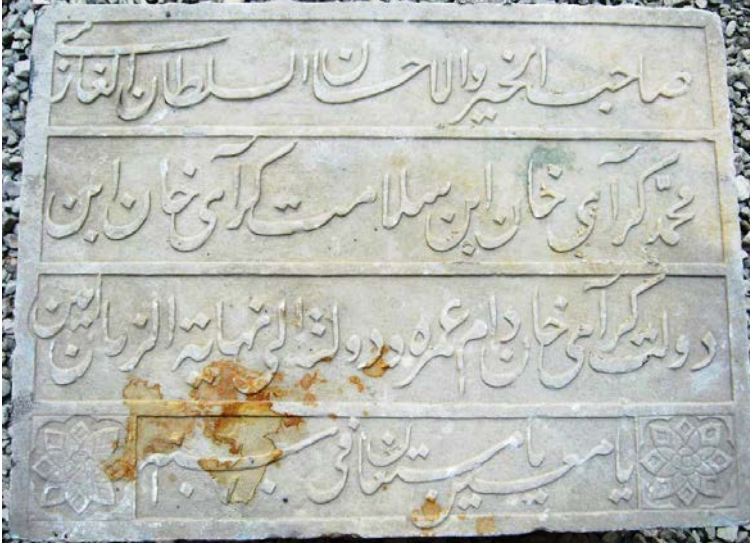 صاحب الخير والاحسان السلطان الغازى
محمد كراى خان ابن سلامت كراى خان ابن
دولت كراى خان دام عمره ودولته الى نهاية الزمان امين
يا معين يا مستعان فى سنة